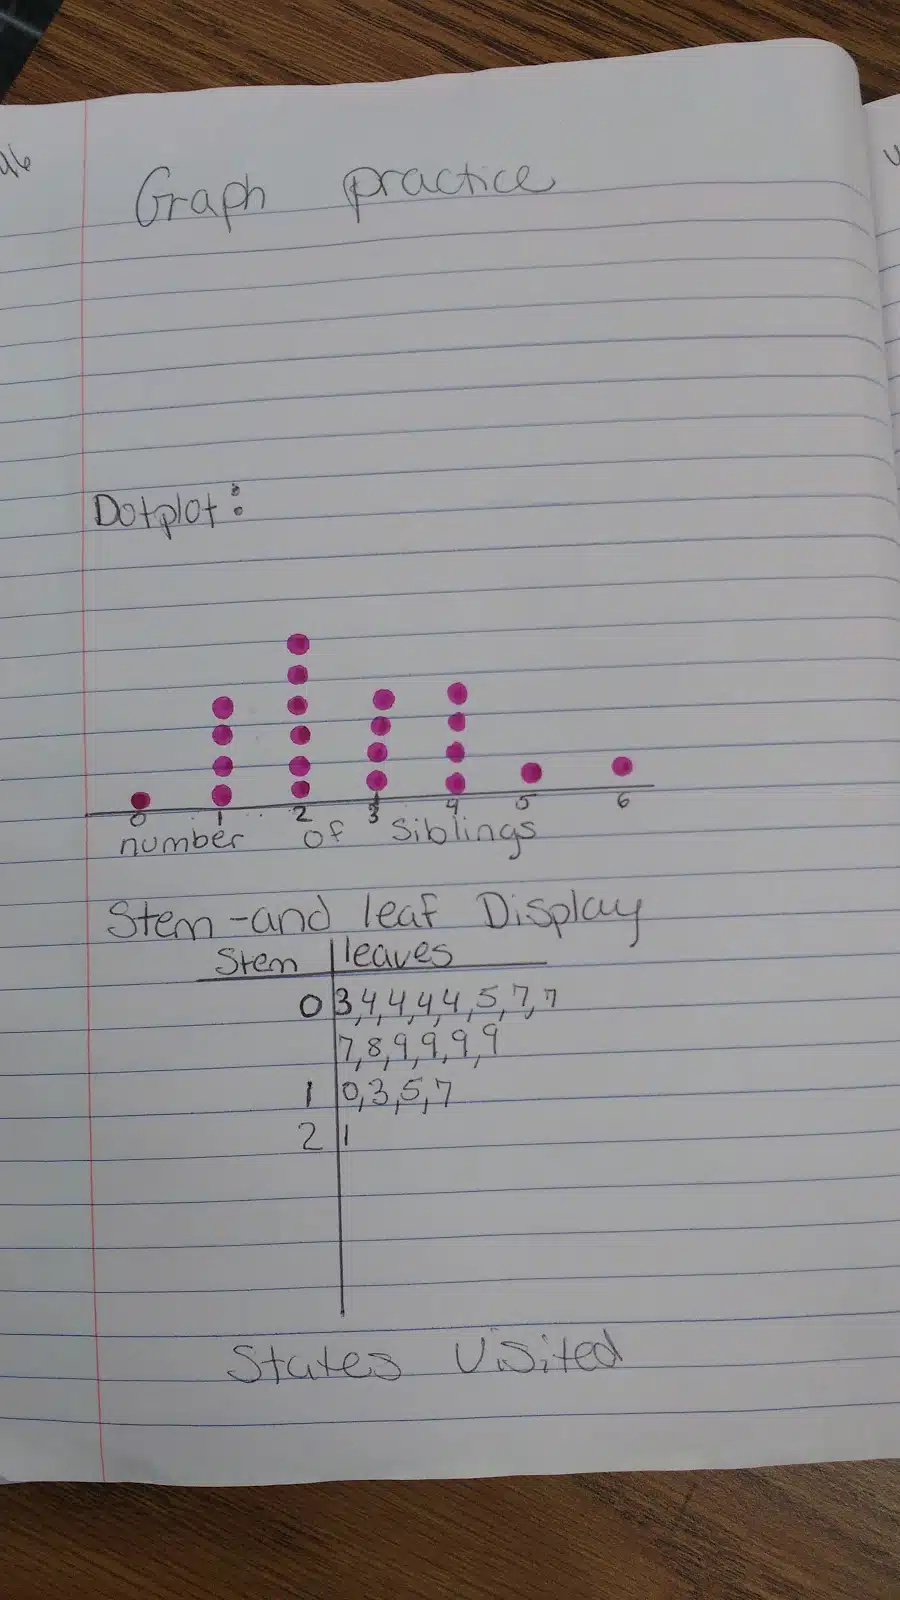 Graph practice
Dotplot:
0 1 2 3 4 5 6
number of siblings
Stem-and leaf Display
Stem leaves
0 3,4,4,4,4,5,7,7
7,8,9,9,9,9
1 0,3,5,7
2 1
States Visited